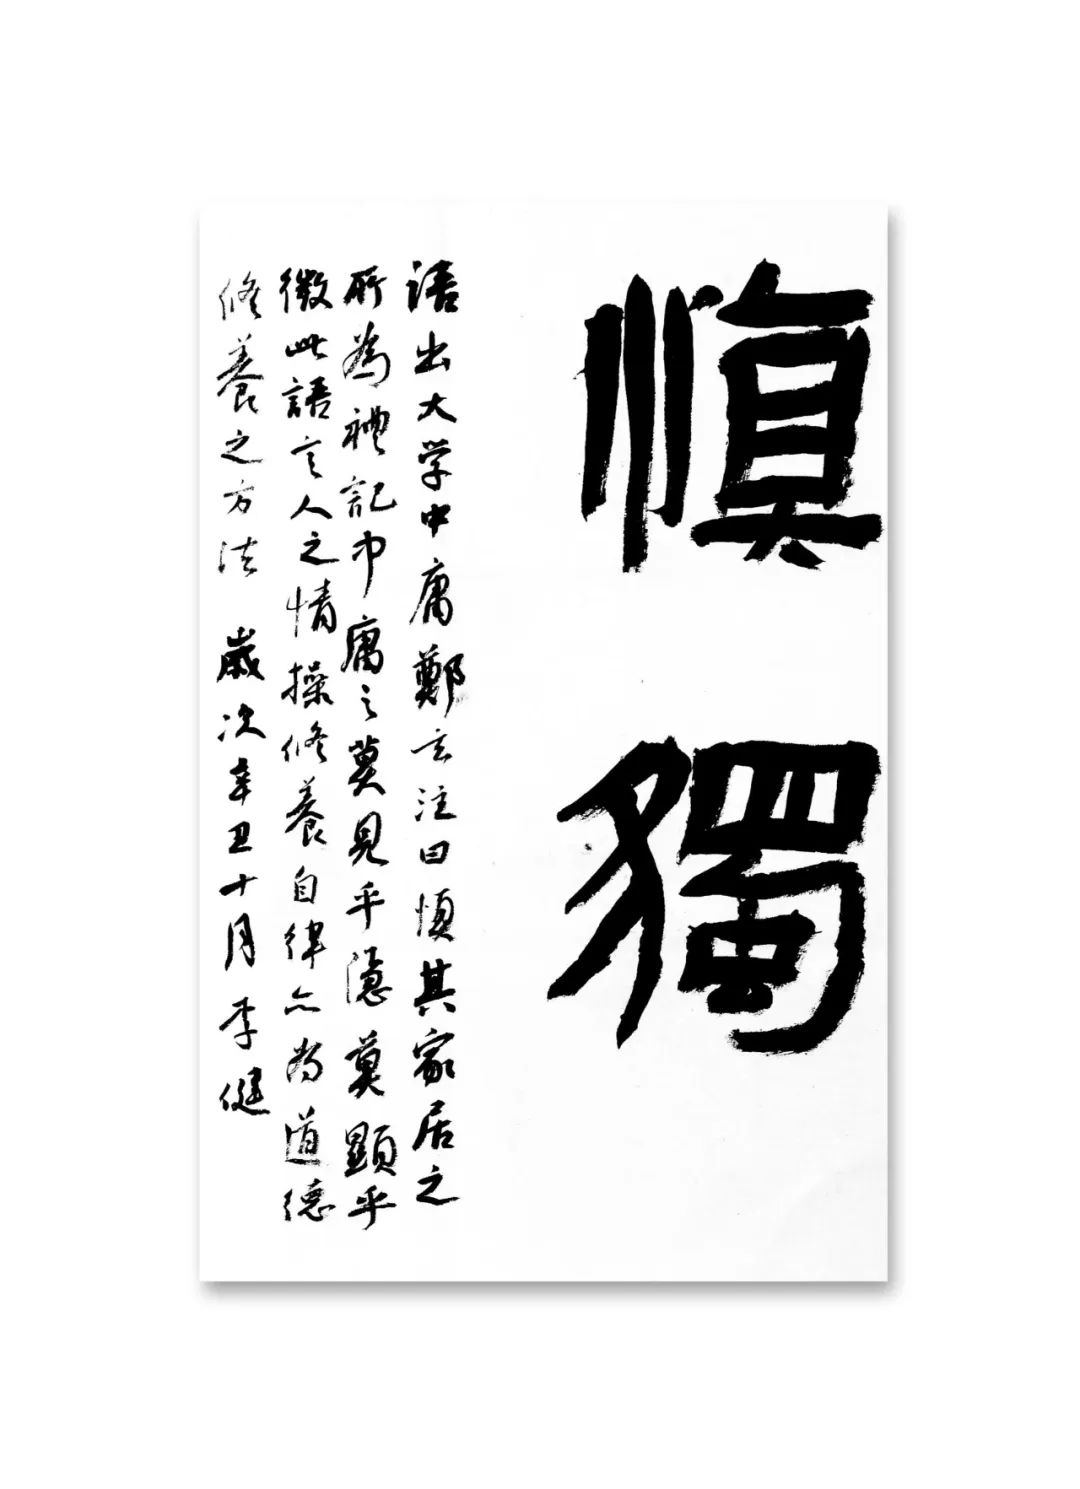 慎獨
語出大学中庸鄭玄注曰慎其家居之
所為禮記中庸之莫見乎隱莫顯乎
微此語言人之情操修養自律亦為道德
修養之方法 歲次辛丑十月李健